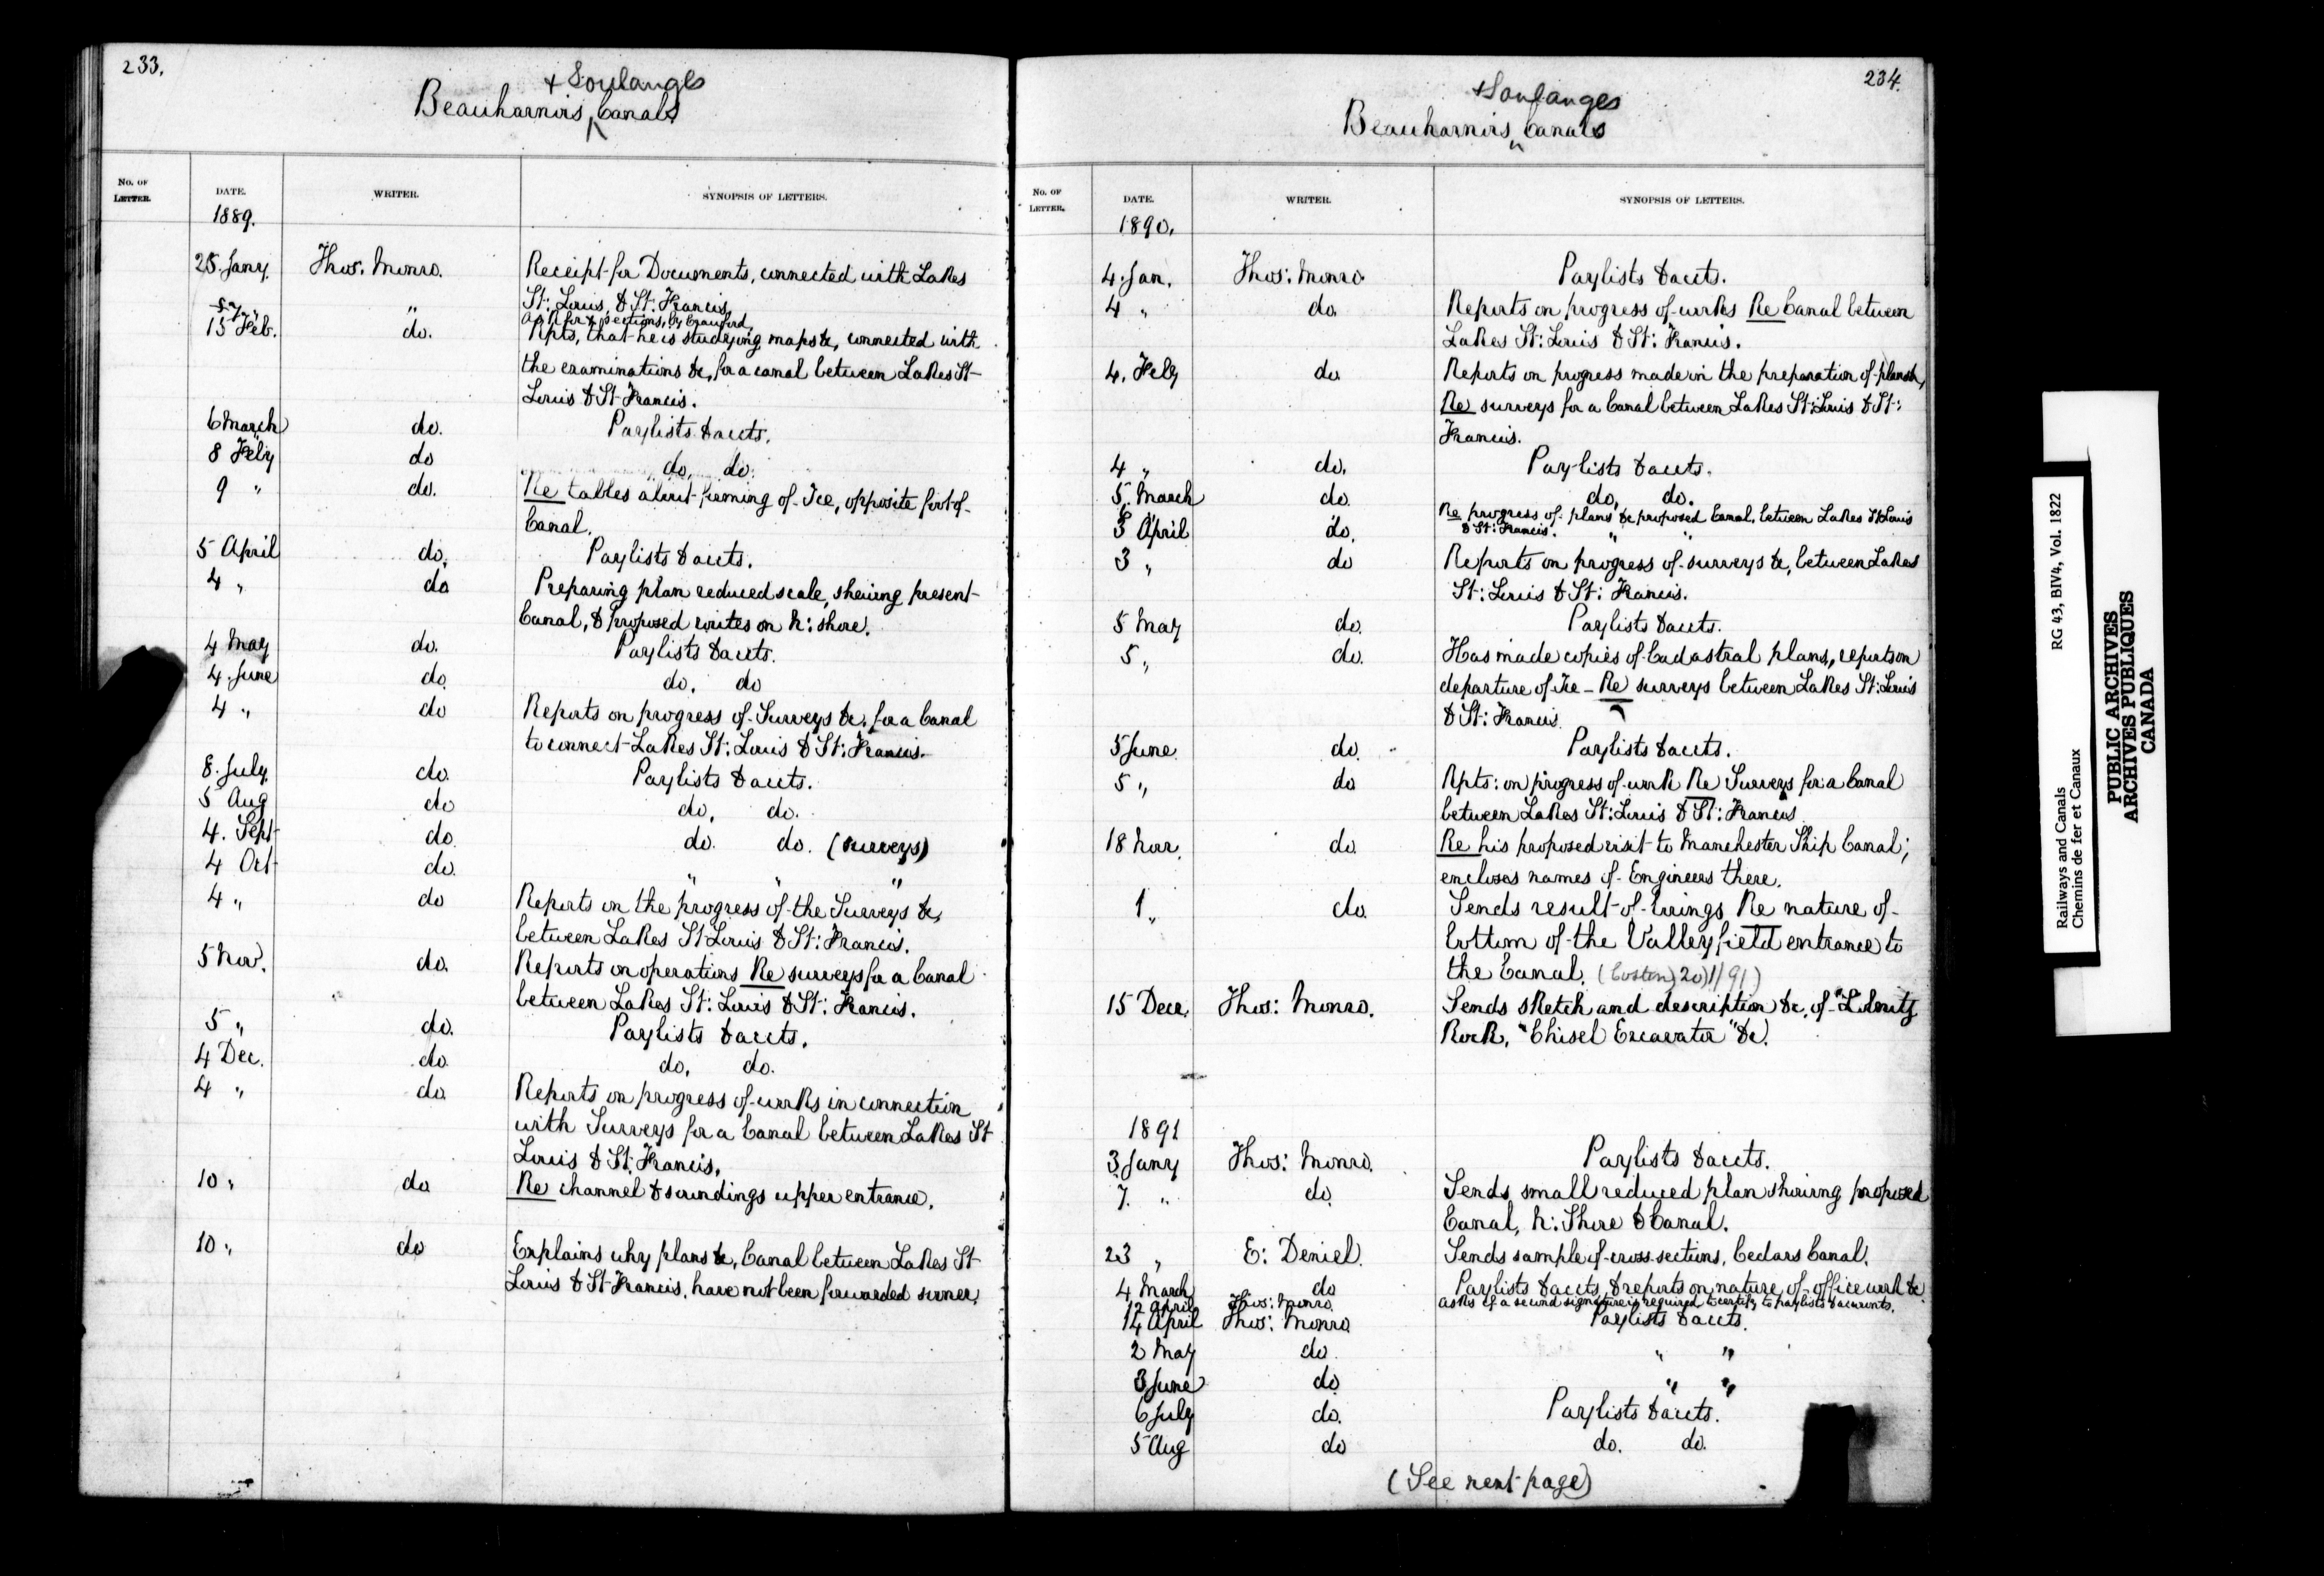 233.
+ Soulanges
Beauharnois Canals
No. of Letter.
DATE.
WRITER.
SYNOPSIS OF LETTERS.
1889.
25. Jany. Thos: Monro. Receipt for Documents, connected with Lakes
St: Louis, & St: Francis
15 Feb. do. Rpts, that he is studying maps &c, connected with
the examinations &c, for a canal between Lakes St
Louis & St Francis.
6 March do. Paylists & accts.
8 Feby do do. do.
9 " do. Re tables about forming of Ice, opposite foot of
Canal.
5 April do. Paylists & accts.
4 " do Preparing plan reduced scale, shewing present
Canal, & proposed routes on N: shore.
4 May do. Paylists & accts.
4. June do. do. do
4 " do Reports on progress of Surveys &c. for a Canal
to connect Lakes St: Louis & St: Francis.
8. July do. Paylists & accts.
5 Aug do do. do.
4. Sept do. do. do. (surveys)
4 Oct do. " " "
4 " do Reports on the progress of the Surveys &c,
between Lakes St Louis & St: Francis.
5 Nov. do. Reports on operations Re surveys for a Canal
between Lakes St: Louis & St: Francis.
5 " do. Paylists & accts.
4 Dec. do. do. do.
4 " do. Reports on progress of works in connection
with Surveys for a Canal between Lakes St
Louis & St. Francis.
10 " do Re channel & soundings upper entrance.
10 " do Explains why plans &c, Canal between Lakes St
Louis & St Francis, have not been forwarded sooner.
234.
+ Soulanges
Beauharnois Canals
No. of Letter.
DATE.
WRITER.
SYNOPSIS OF LETTERS.
1890.
4. Jan. Thos: Monro Paylists & accts.
4 " do. Reports on progress of works Re Canal between
Lakes St: Louis & St: Francis.
4. Feby do. Reports on progress made in the preparation of plans &c,
Re surveys for a Canal between Lakes St: Louis & St:
Francis.
4 " do. Paylists & accts.
5. March do. do. do.
Re progress of plans &c proposed Canal, between Lakes St Louis
& St: Francis.
3 April do. " "
3 " do Reports on progress of surveys &c, between Lakes
St: Louis & St: Francis.
5 May do. Paylists & accts.
5 " do. Has made copies of Cadastral plans, reports on
departure of Ice - Re surveys between Lakes St: Louis
& St: Francis.
5 June do. Paylists & accts.
5 " do Rpts: on progress of work Re Surveys for a Canal
between Lakes St: Louis & St: Francis
18 Nov. do. Re his proposed visit to Manchester Ship Canal;
encloses names of Engineers there.
1 " do. Sends result of borings Re nature of
bottom of the Valleyfield entrance to
the Canal. (Coston) 20/1/91)
15 Dec. Thos: Monro. Sends sketch and description &c. of
Rock, "Chisel Excavator" &c.
1891
3 Jany Thos: Monro. Paylists & accts.
7. " do. Sends small reduced plan shewing proposed
Canal, N: Shore & Canal.
23 " E: Deniel. Sends sample of cross sections, Cedars Canal.
4 March do Paylists & accts, & reports on nature of office work &c.
12 April Thos: Monro. Asks if a second signature is required to certify to paylists & accounts.
14 April Thos: Monro. Paylists & accts.
2 May do. " "
3 June do. " "
6 July do. Paylists & accts.
5 Aug do do. do.
(See next page)
Railways and Canals
Chemins de fer et Canaux
RG 43, BIV4, Vol. 1822
PUBLIC ARCHIVES
ARCHIVES PUBLIQUES
CANADA